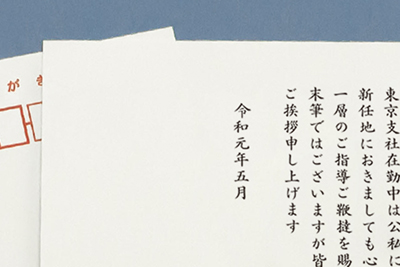 東京支社在勤中は公私に
新任地におきましても心
一層のご指導ご鞭撻を賜
末筆ではございますが皆
ご挨拶申し上げます
令和元年五月
がき